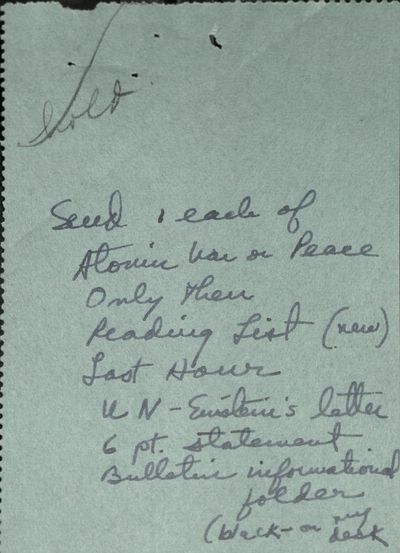 Hold
Send 1 each of
Atomic War or Peace
Only Then
Reading List (new)
Last Hour
UN - Einstein's letter
6 pt. statement
Bulletin informational
folder
(black - on my
desk